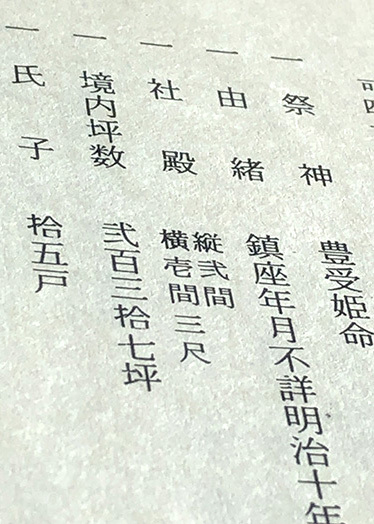 一祭神 豊受姫命
一由緒 鎮座年月不詳明治十年
一社殿 縦弐間
横壱間三尺
一境内坪数 弐百三拾七坪
一氏子 拾五戸